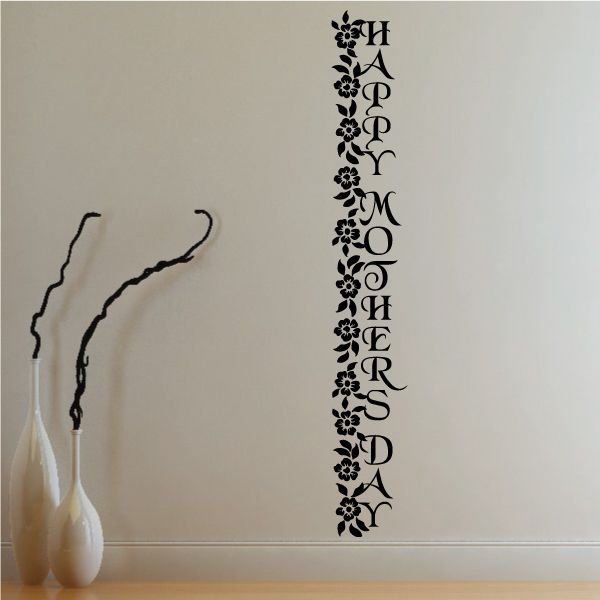 HAPPY MOTHERS DAY